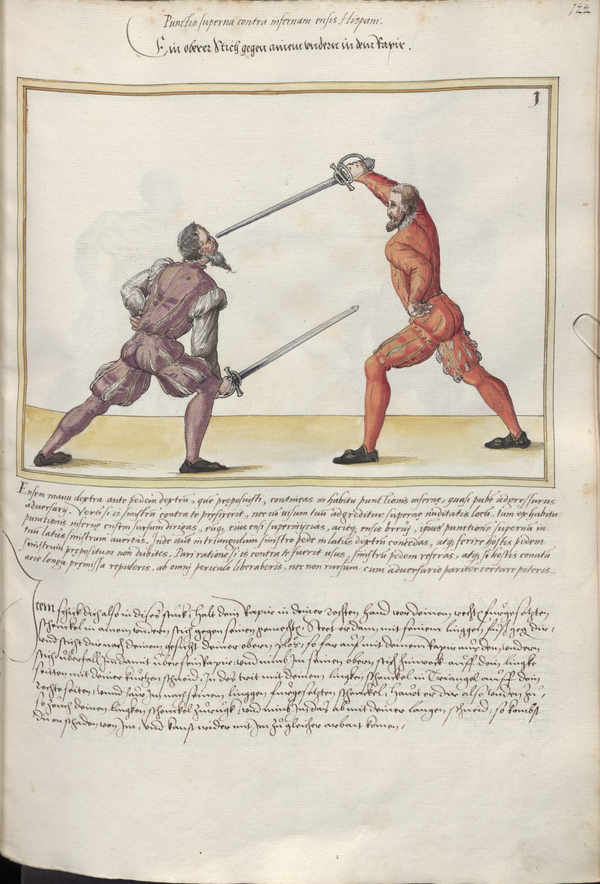 122
Punctio superna contra infernam ensis Hispani.
Ein oberer Stich gegen ainem undern in dem Rapir.
1
Ensem manu dextra ante pedem dextrũ, que preposuisti, contineas in habitu punctionis infernę, quasi pubi adgressurus
adversarij. Verũ si is sinistrũ contra te preferret, nec nõ visum tuũ adgreditur supernę nuditatis loco, tum ex habitu
punctionis infernę ensem sursum dirigas, eiq; eius ensi superinijcias, acieq; ensis brevi, ipsius punctionẽ supernã in
tuũ latus sinistrum avertas. Inde aũt in triangulum sinistro pede in latus dextrũ concedas, atq; ferire hostis pedem
sinistrum prepositum non dubites. Pari ratione si is contra te fuerit usus, sinistrũ pedem referas, atq; si hostis conatũ
acie longa premissa repuleris, ab omni periculo liberaberis, nec non rursum cum adversario pariter certare poteris.
Item schick dich also in dises stuckh halt dein Rapir in deiner rechten hand vor deinem rechten fürgesetzten
schenckel in ainem undern stich gegen seinem gemechte, trit er dann mit seinem linggen fuoß gegen dir,
und sticht dir nach deinem gesicht deiner obern plöß, so far auf mit deinem Rapir auß dem undern
stich überfall Im damit über sein Rapir, und nimb Im seinen obern stich hinweck auff dein lincke
seitten mit deiner kurtzen schneid, In des trit mit deinem lingken schenckel in Triangel auff dein
rechte seiten, und haw Im nach seinem linggen fürgesetzten schenckel, Hawt er dir also unden zuo,
so zeuch deinen lingken schenckel zuruck, und nimb In das ab mit deiner langen schneid, so kombst
du on schaden von Im, und kanst wider mit Im zu gleicher arbait komen.